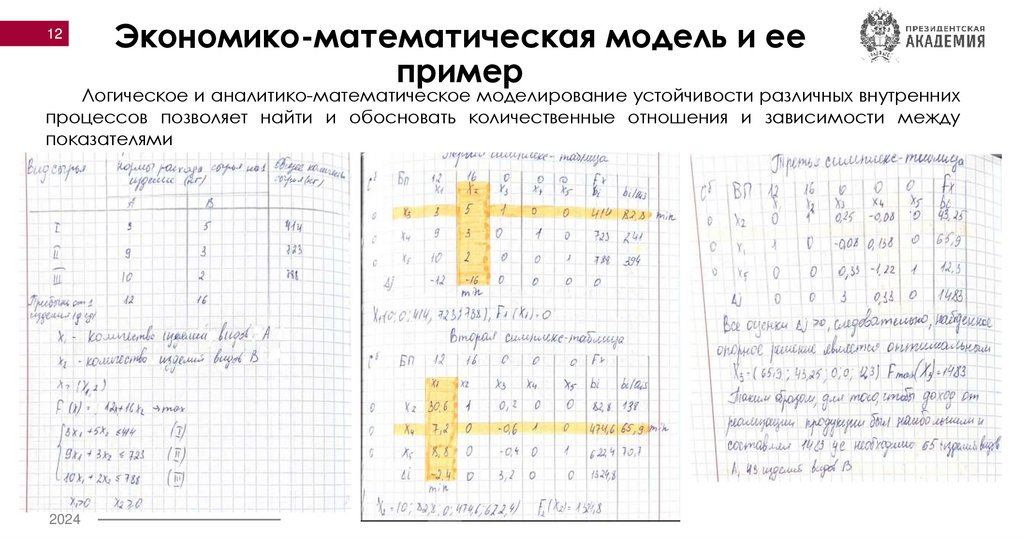 12
Экономико-математическая модель и ее
пример
ПРЕЗИДЕНТСКАЯ
АКАДЕМИЯ
Логическое и аналитико-математическое моделирование устойчивости различных внутренних
процессов позволяет найти и обосновать количественные отношения и зависимости между
показателями
Вид сырья Нормы расхода сырья на 1 изделие (кг) Общее колич. сырья (кг)
А В
I 3 5 414
II 9 3 723
III 10 2 788
Прибыль от 1 изделия 12 16
x1 - количество изделий видов А
x2 - количество изделий видов В
F(x) = 12x1+16x2 → max
3x1 + 5x2 ≤ 414 (I)
9x1 + 3x2 ≤ 723 (II)
10x1 + 2x2 ≤ 788 (III)
x1≥0 x2≥0
Первая симплекс-таблица
Сб БП 12 16 0 0 0 Fx
x1 x2 x3 x4 x5 bi bi/ais
0 x3 3 5 1 0 0 414 82,8 min
0 x4 9 3 0 1 0 723 241
0 x5 10 2 0 0 1 788 394
Δj -12 -16 0 0 0 0
min
X1(0; 0; 414, 723; 788), F1(X1)=0
Вторая симплекс-таблица
Сб БП 12 16 0 0 0 Fx
x1 x2 x3 x4 x5 bi bi/ais
0 x2 30,6 1 0,2 0 0 82,8 138
0 x4 7,2 0 -0,6 1 0 474,6 65,9 min
0 x5 8,8 0 -0,4 0 1 622,4 70,7
Δi -2,4 0 3,2 0 0 1324,8
min
X2=(0; 82,8, 0; 474,6; 622,4) F2(X2)=1324,8
Третья симплекс-таблица
Сб ВП 12 16 0 0 0 Fx
x1 x2 x3 x4 x5 bi
0 x2 0 1 0,25 -0,08 0 43,25
0 x1 1 0 -0,08 0,138 0 65,9
0 x5 0 0 0,33 -1,22 1 12,3
Δj 0 0 3 0,33 0 1483
Все оценки Δj ≥0, следовательно, найденное
опорное решение является оптимальным
X3=(65,9; 43,25; 0, 0; 12,3) Fmax(X3)=1483
Таким образом, для того, чтобы доход от
реализации продукции был наибольшим и
составлял 1483 у.е необходимо 65 изделий видов
А, 43 изделий видов В
2024